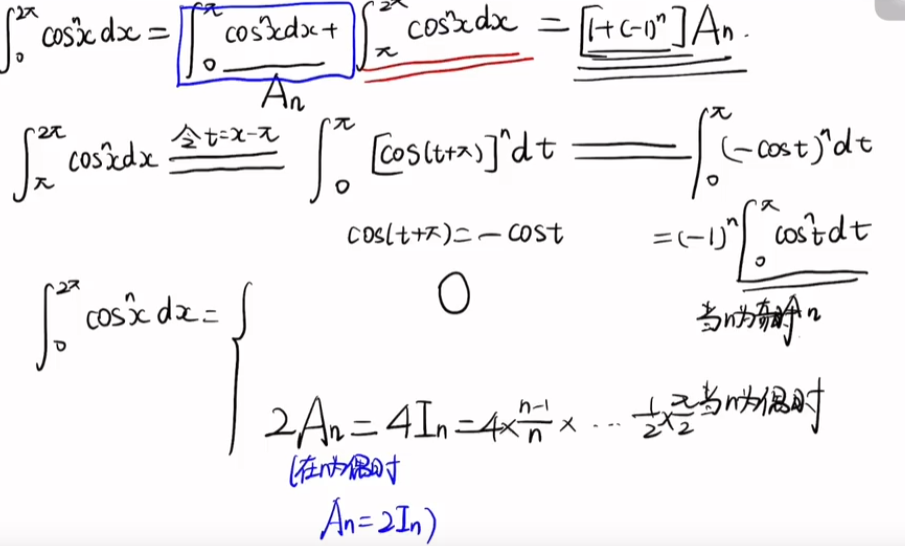 ∫₀^{2π} cosⁿx dx = ∫₀^{π} cosⁿx dx + ∫_π^{2π} cosⁿx dx = [1+(-1)ⁿ] Aₙ.
Aₙ
∫_π^{2π} cosⁿx dx 令t=x-π ∫₀^{π} [cos(t+π)]ⁿ dt = ∫₀^{π} (-cost)ⁿ dt
cos(t+π) = -cost = (-1)ⁿ ∫₀^{π} cosⁿt dt
Aₙ
∫₀^{2π} cosⁿx dx = { 0 当n为奇时
2Aₙ = 4Iₙ = 4× (n-1)/n × ⋯ 1/2 × π/2 当n为偶时
(在n为偶时
Aₙ=2Iₙ)